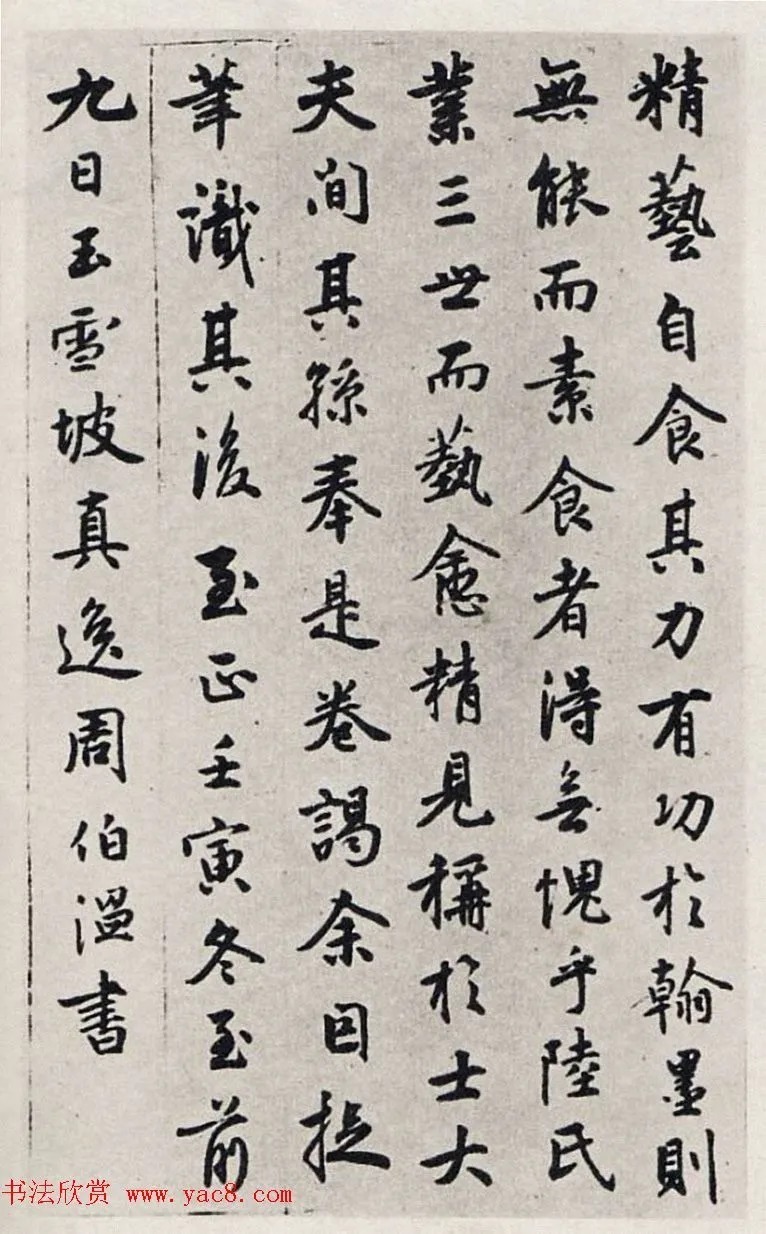 精藝自食其力有功於翰墨則
無能而素食者得無愧乎陸氏
業三世而藝愈精見稱於士大
夫間其孫奉是卷謁余因捉
筆識其後至正壬寅冬至前
九日玉雪坡真逸周伯溫書
书法欣赏 www.yac8.com